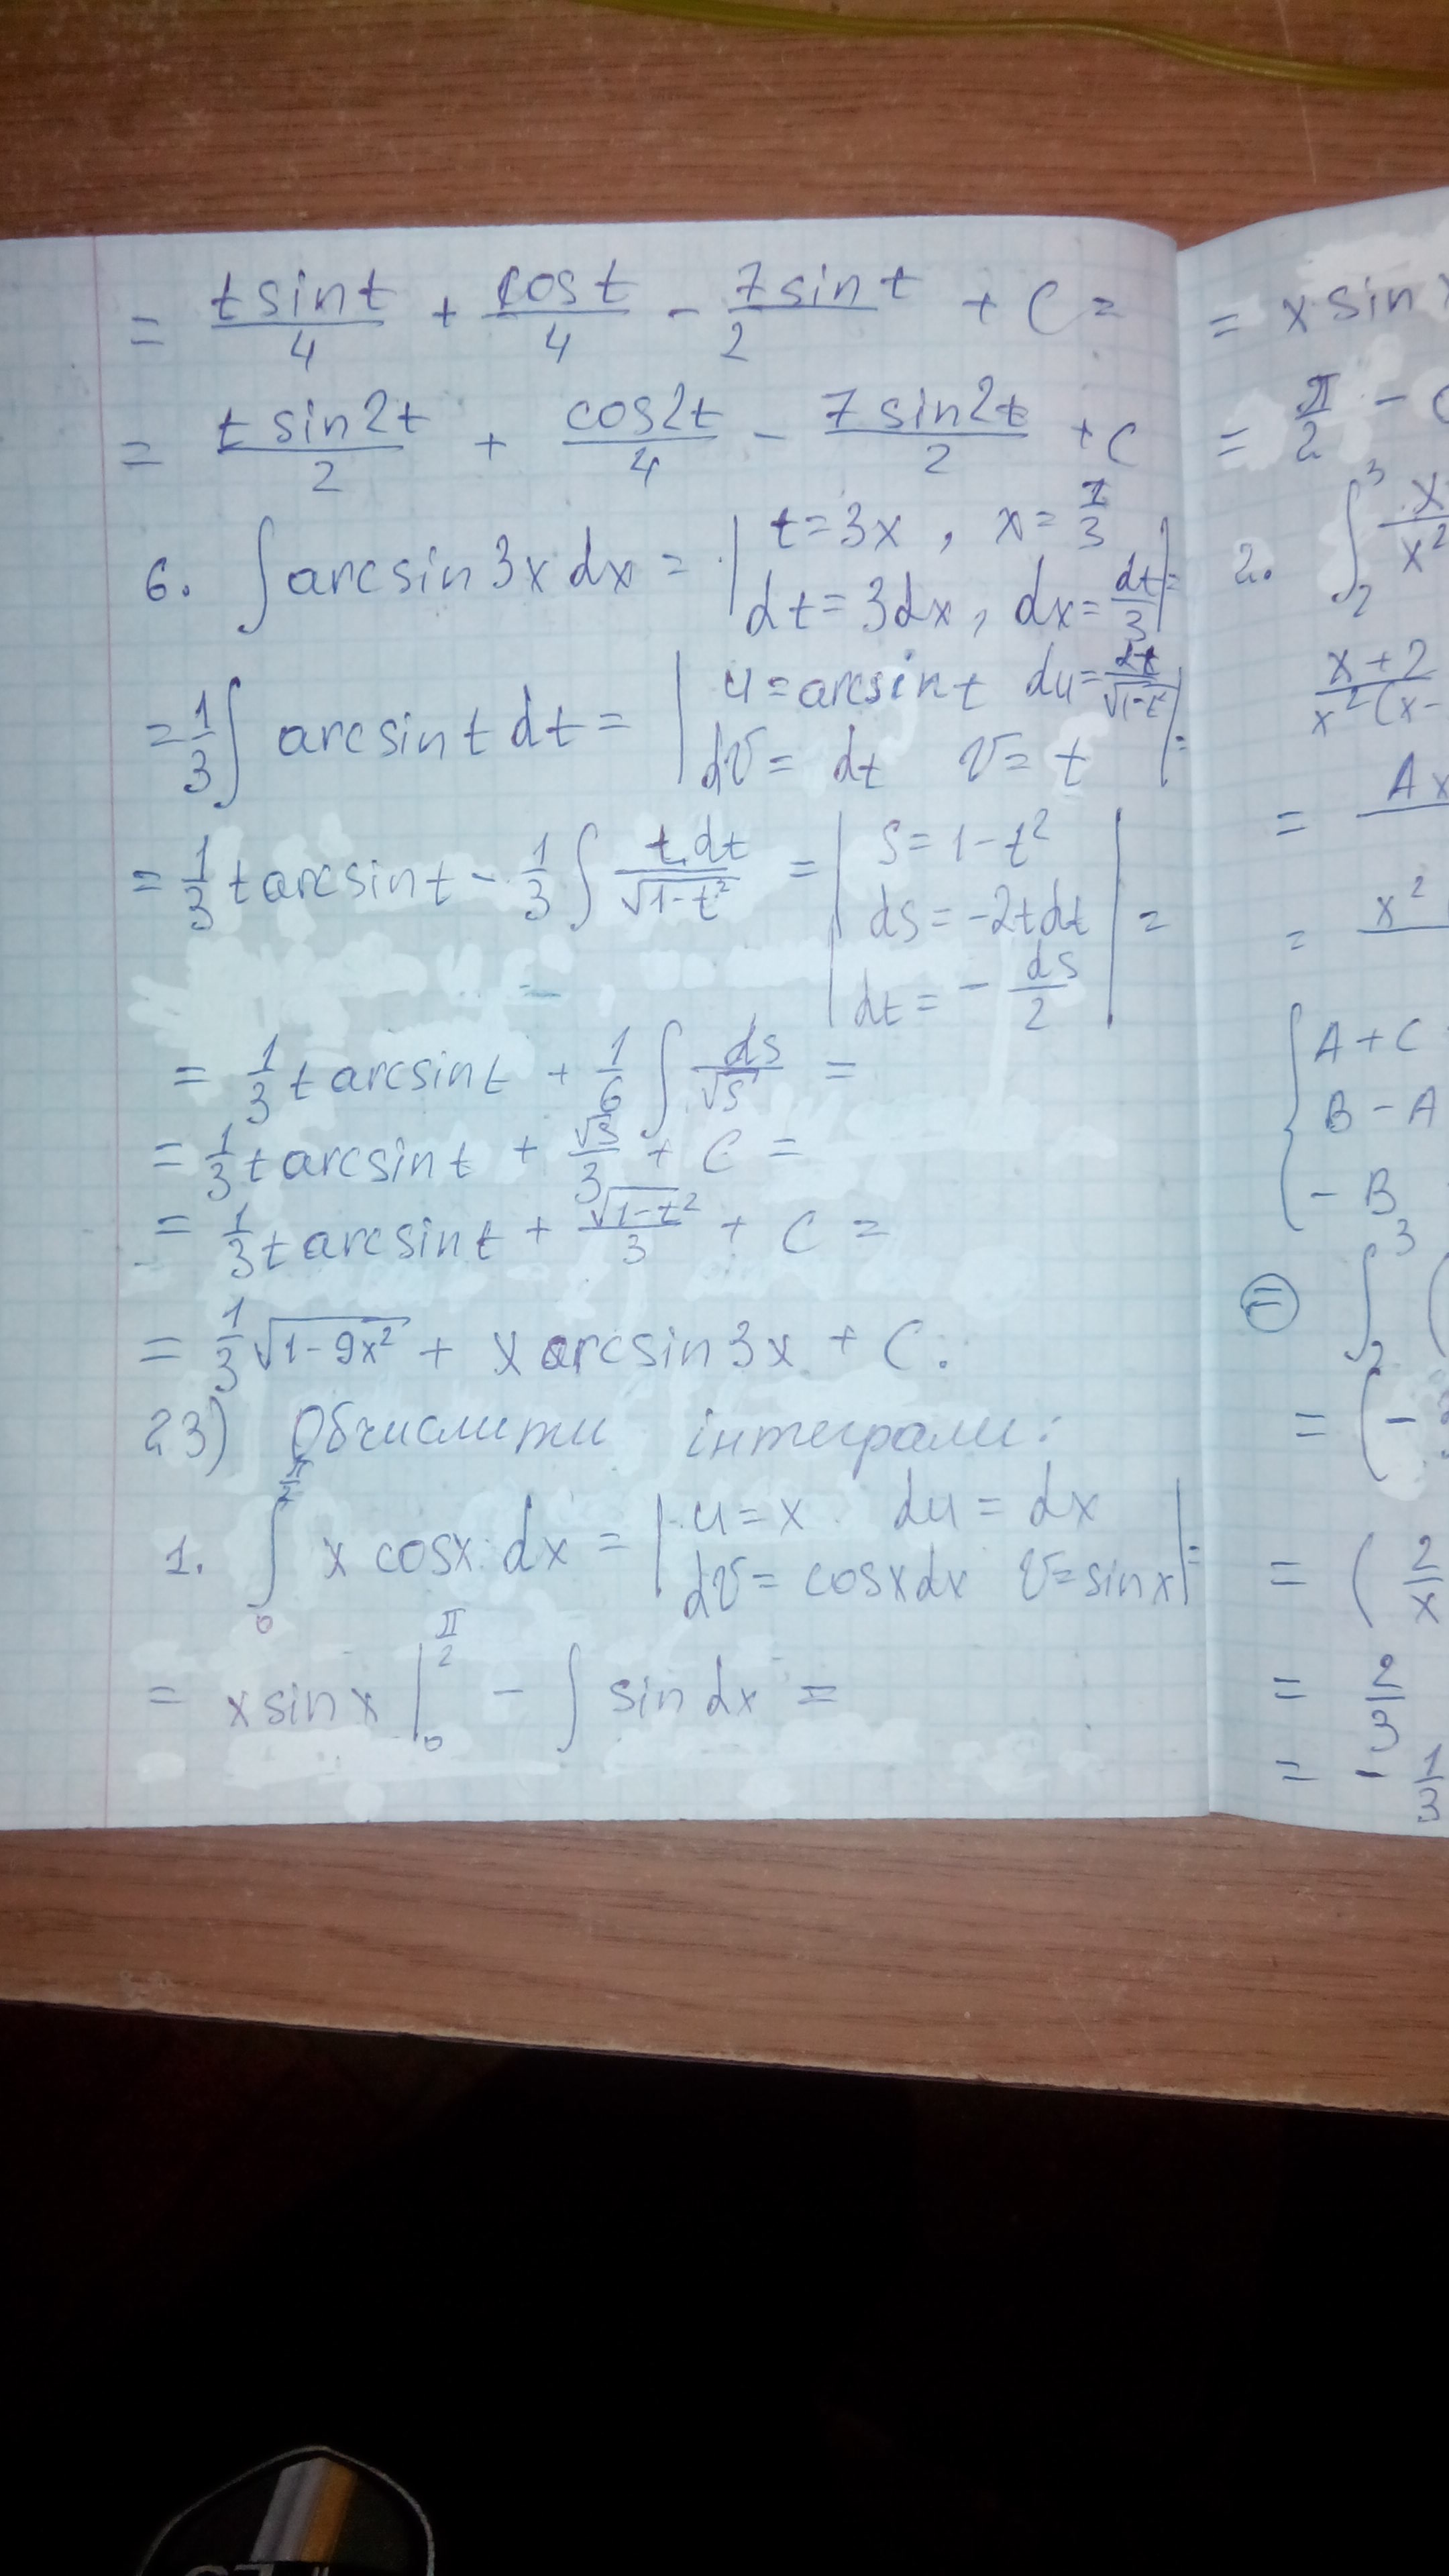 = t sin t / 4 + cos t / 4 - 7 sin t / 2 + C =
= t sin 2t / 2 + cos 2t / 4 - 7 sin 2t / 2 + C
6. ∫ arcsin 3x dx = | t = 3x , x = t/3
dt = 3dx , dx = dt/3 | =
= 1/3 ∫ arcsin t dt = | u = arcsin t du = dt/√(1-t²)
dv = dt v = t | =
= 1/3 t arcsin t - 1/3 ∫ t dt / √(1-t²) = | s = 1-t²
ds = -2t dt | =
dt = - ds/2
= 1/3 t arcsin t + 1/6 ∫ ds/√s =
= 1/3 t arcsin t + √s/3 + C =
= 1/3 t arcsin t + √(1-t²)/3 + C =
= 1/3 √(1-9x²) + x arcsin 3x + C.
23) Обчислити інтеграли:
1. ∫₀^(π/2) x cos x dx = | u = x du = dx
dv = cos x dx v = sin x | =
= x sin x |₀^(π/2) - ∫ sin dx =
= x sin
= π/2 -
2. ∫₂³ x / x²
x+2 / x²(x-
= Ax
= x²
{ A + C
B - A
- B
⊜ ∫₂³ (
= ( -
= ( 2/x
= 2/3
= - 1/3